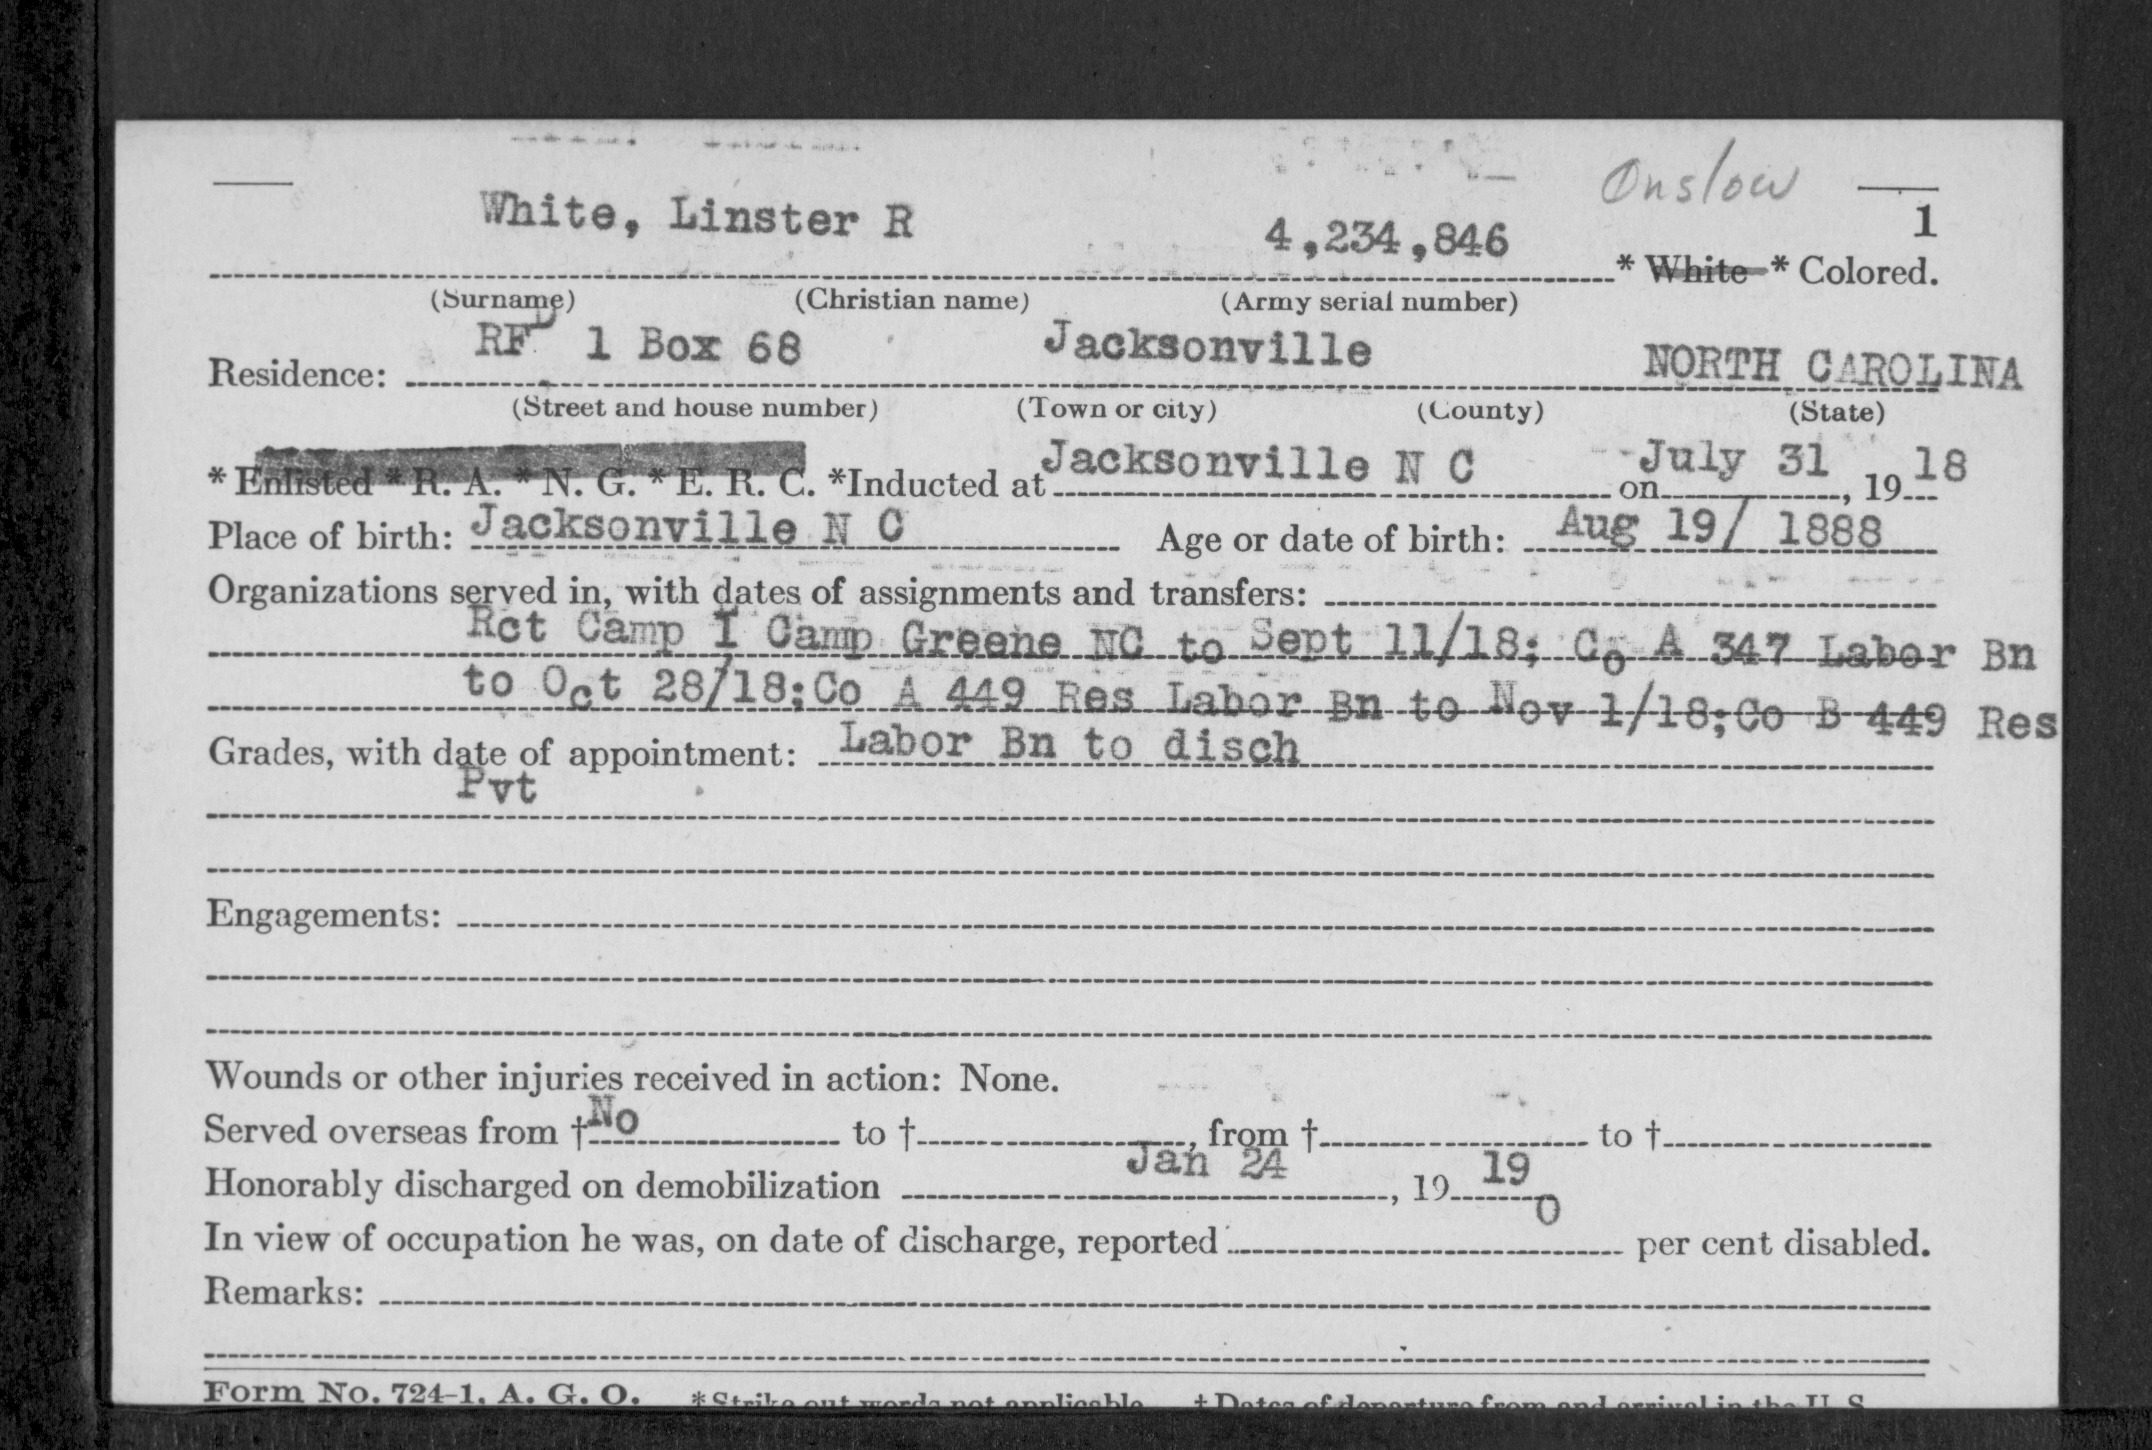 Onslow
White, Linster R 4,234,846 1
* White * Colored.
(Surname) (Christian name) (Army serial number)
RFD 1 Box 68 Jacksonville NORTH CAROLINA
Residence:
(Street and house number) (Town or city) (County) (State)
* Enlisted * R. A. * N. G. * E. R. C. *Inducted at Jacksonville N C on July 31, 1918
Place of birth: Jacksonville N C Age or date of birth: Aug 19/ 1888
Organizations served in, with dates of assignments and transfers:
Rct Camp I Camp Greene NC to Sept 11/18; Co A 347 Labor Bn
to Oct 28/18;Co A 449 Res Labor Bn to Nov 1/18;Co B 449 Res
Labor Bn to disch
Grades, with date of appointment:
Pvt
Engagements:
Wounds or other injuries received in action: None.
Served overseas from † No to †, from † to †
Honorably discharged on demobilization Jan 24, 19 19
In view of occupation he was, on date of discharge, reported 0 per cent disabled.
Remarks:
Form No. 724-1, A. G. O. *Strike out words not applicable. † Dates of departure from and arrival in the U. S.